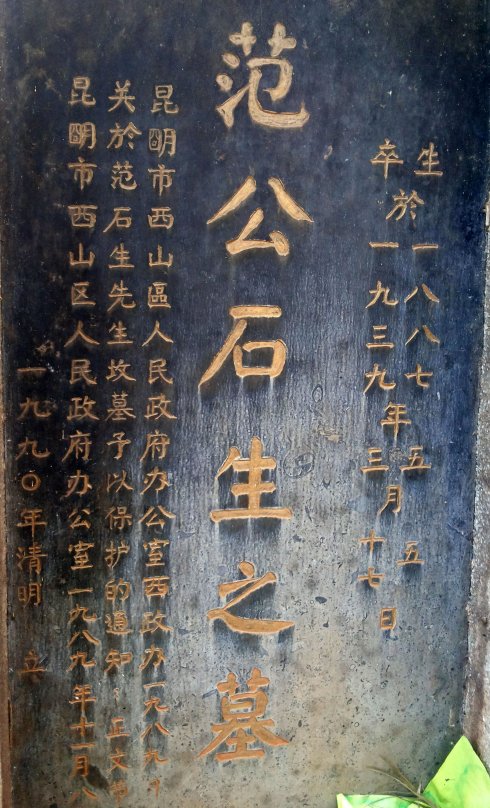 生於一八八七年五月五日
卒於一九三九年三月十七日
范公石生之墓
昆明市西山區人民政府办公室西政办一九八九
关於范石生先生坟墓予以保护的通知：正文
昆明市西山区人民政府办公室一九八九年十一月八
一九九〇年清明 立